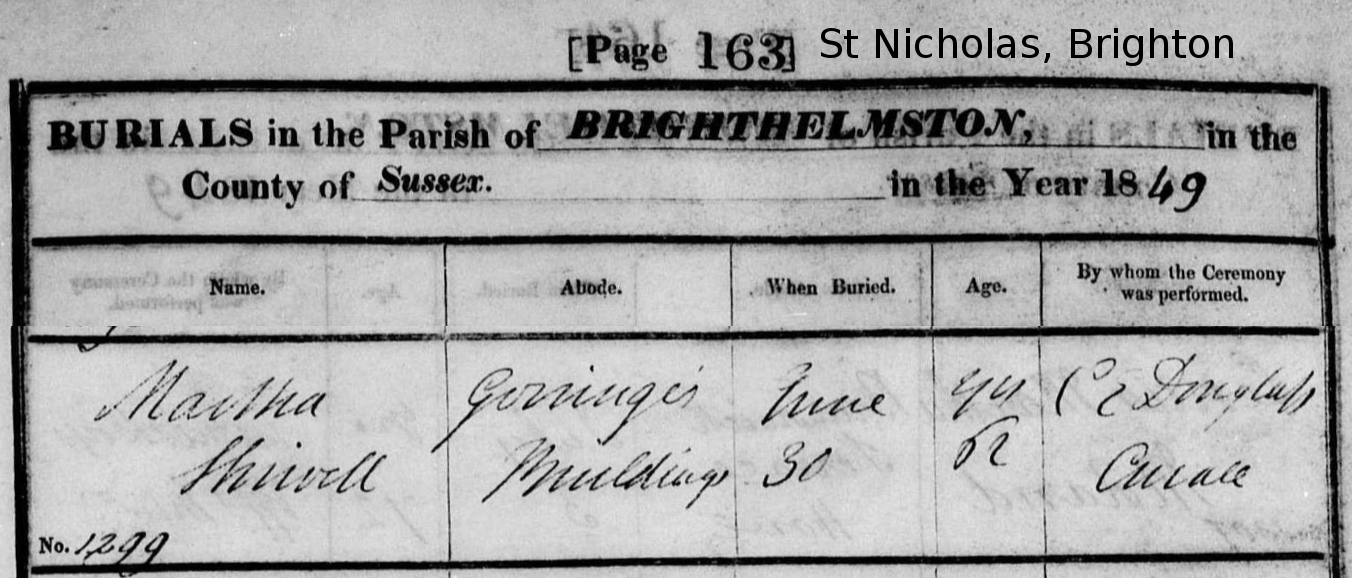 [Page 163] St Nicholas, Brighton
BURIALS in the Parish of BRIGHTHELMSTON, in the
County of Sussex. in the Year 1849
Name. Abode. When Buried. Age. By whom the Ceremony was performed.
Martha Gorringes June C E Douglass
Shirvell Buildings 30 52 Curate
No. 1299